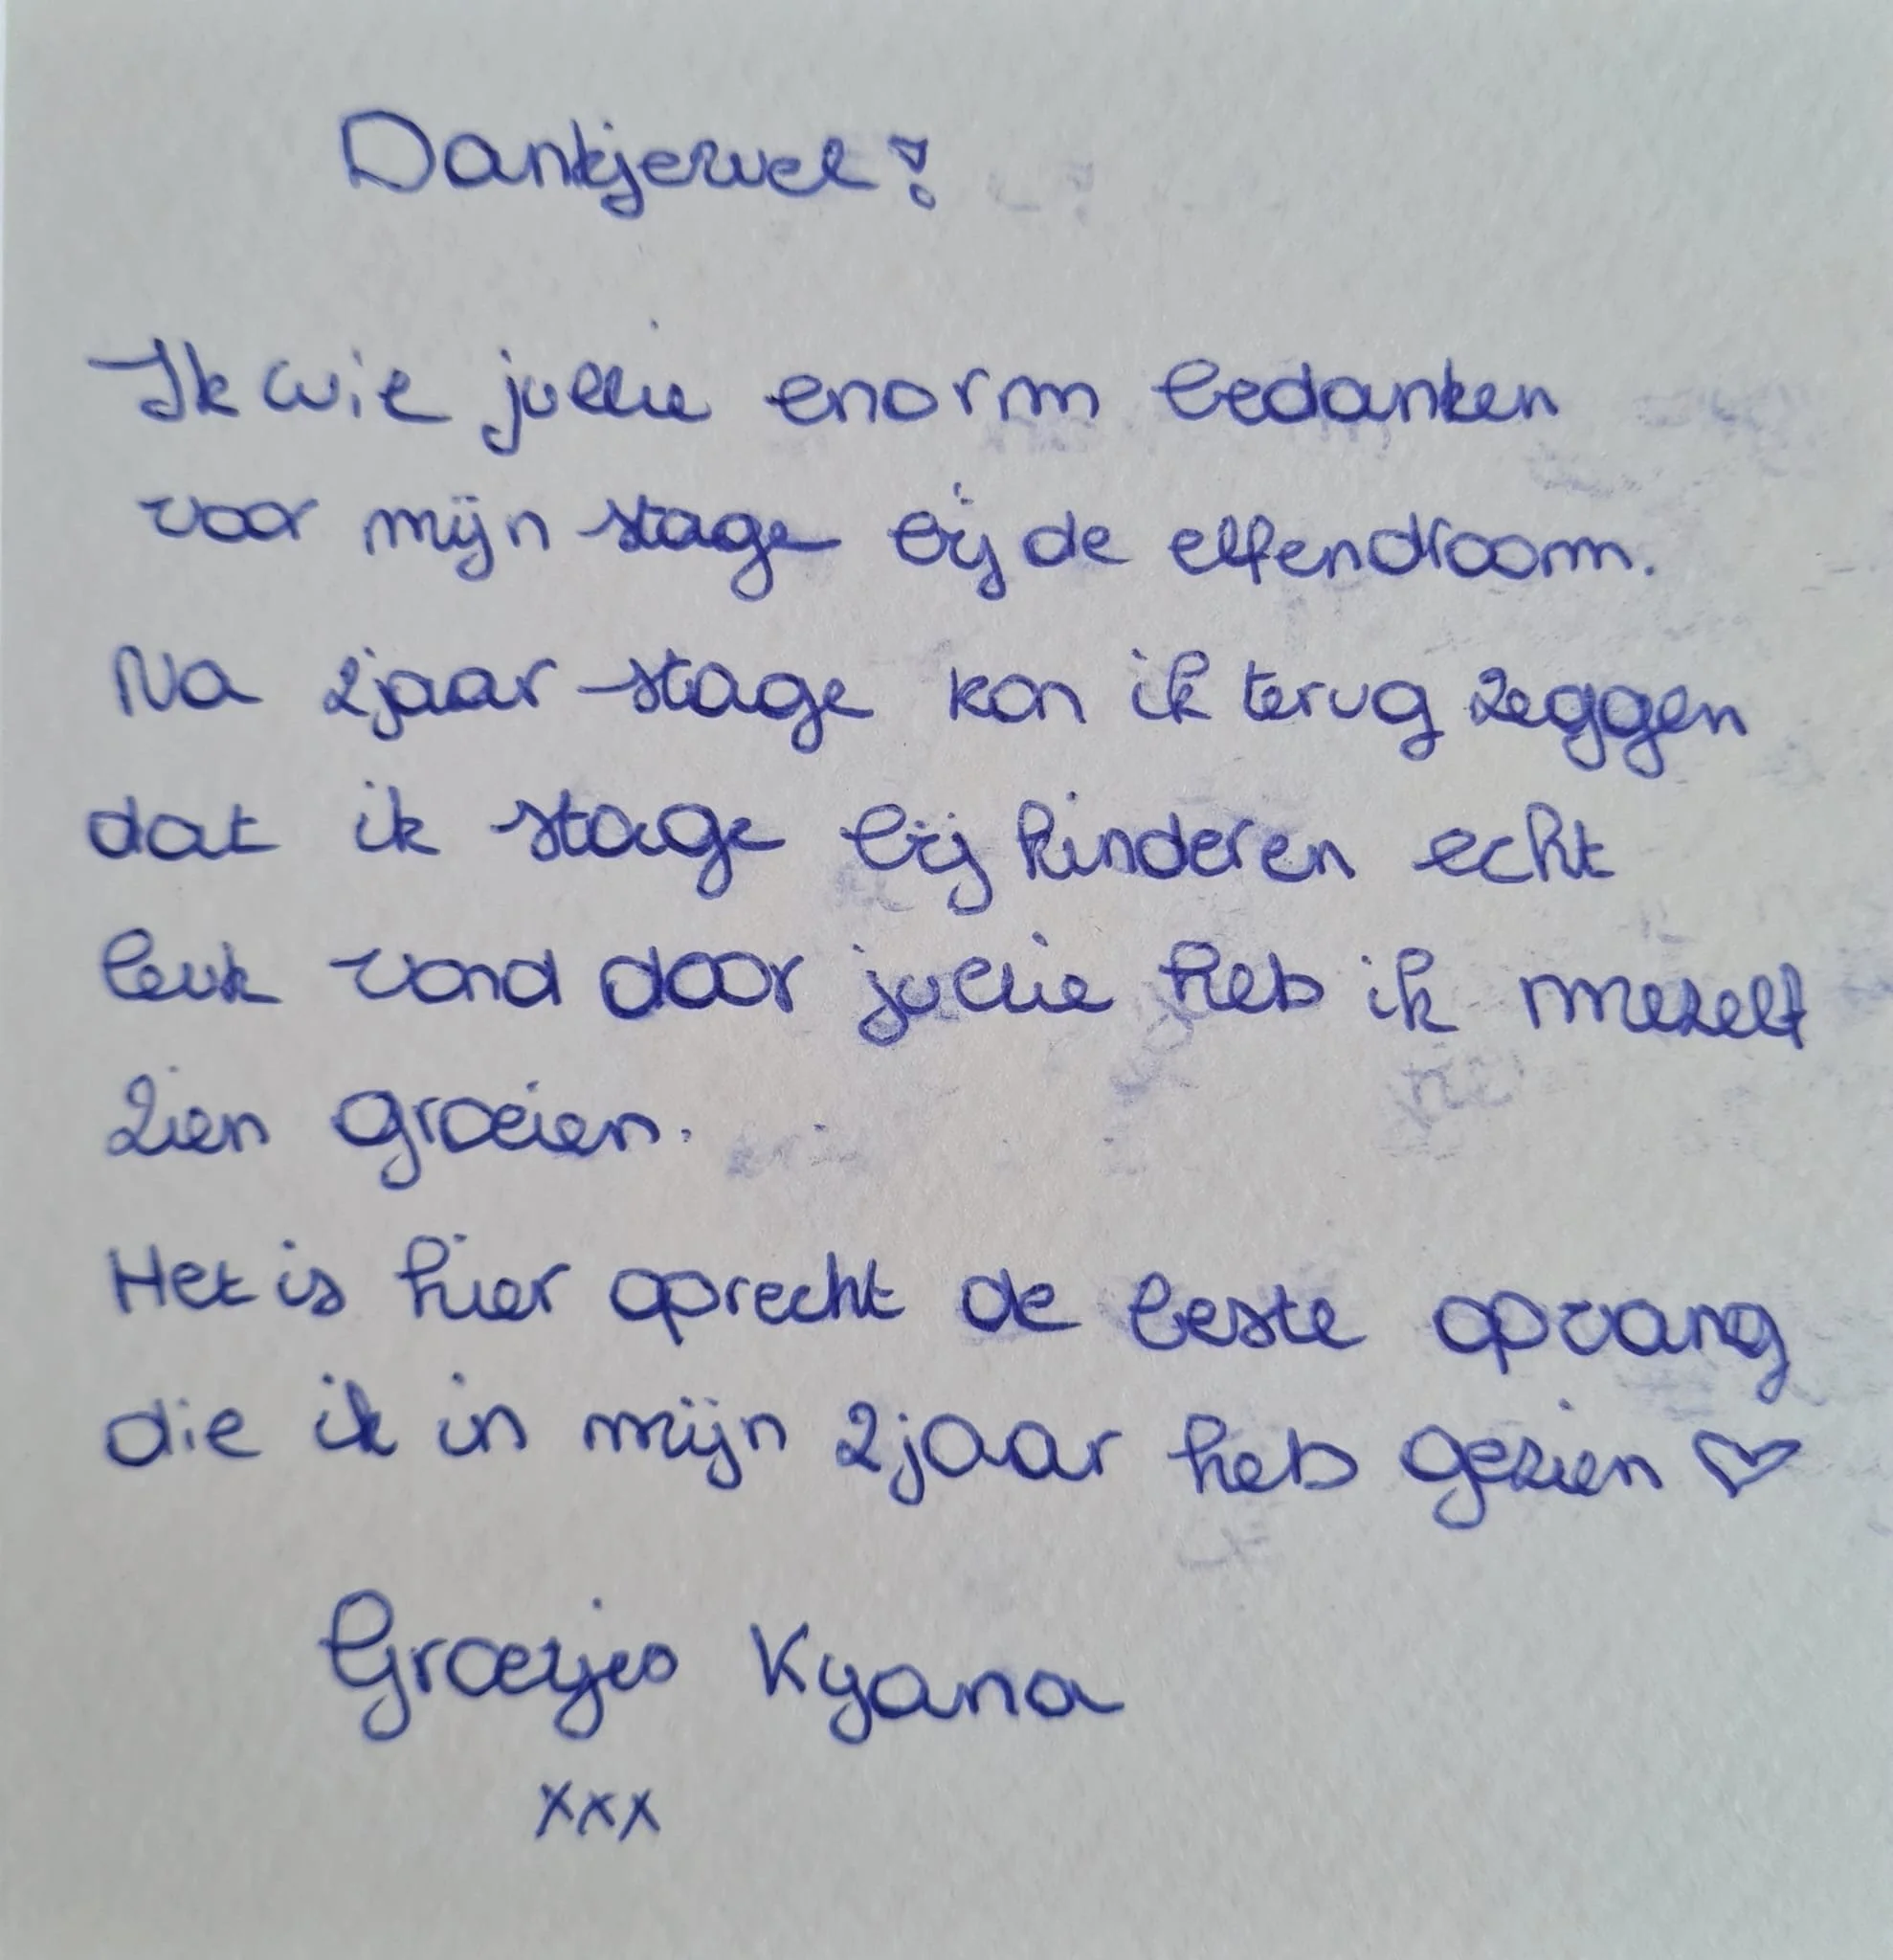 Dankjewel!
Ik wil jullie enorm bedanken
voor mijn stage bij de elfendroom.
Na 2jaar stage kon ik terug zeggen
dat ik stage bij kinderen echt
leuk vond door jullie heb ik mezelf
zien groeien.
Het is hier oprecht de beste opvang
die ik in mijn 2jaar heb gezien ♡
Groetjes Kyana
xxx